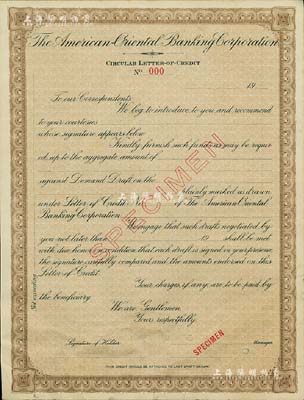 The American-Oriental Banking Corporation
CIRCULAR LETTER-OF-CREDIT
No. 000
19
To our Correspondents
We beg to introduce to you and recommend
to your courtesies
whose signature appears below
Kindly furnish such funds as may be requir
ed, up to the aggregate amount of
against Demand Draft on the plainly marked as drawn
under Letter of Credit No. of The American Oriental
Banking Corporation.
We engage that such drafts negotiated by
you not later than 19 shall be met
with due honor on condition that each draft is signed in your presence
the signature carefully compared and the amounts endorsed on this
Letter of Credit.
Your charges, if any, are to be paid by
the beneficiary
We are Gentlemen
Yours respectfully,
Signature of Holder
Manager
SPECIMEN
SPECIMEN
THIS CREDIT SHOULD BE ATTACHED TO LAST DRAFT DRAWN